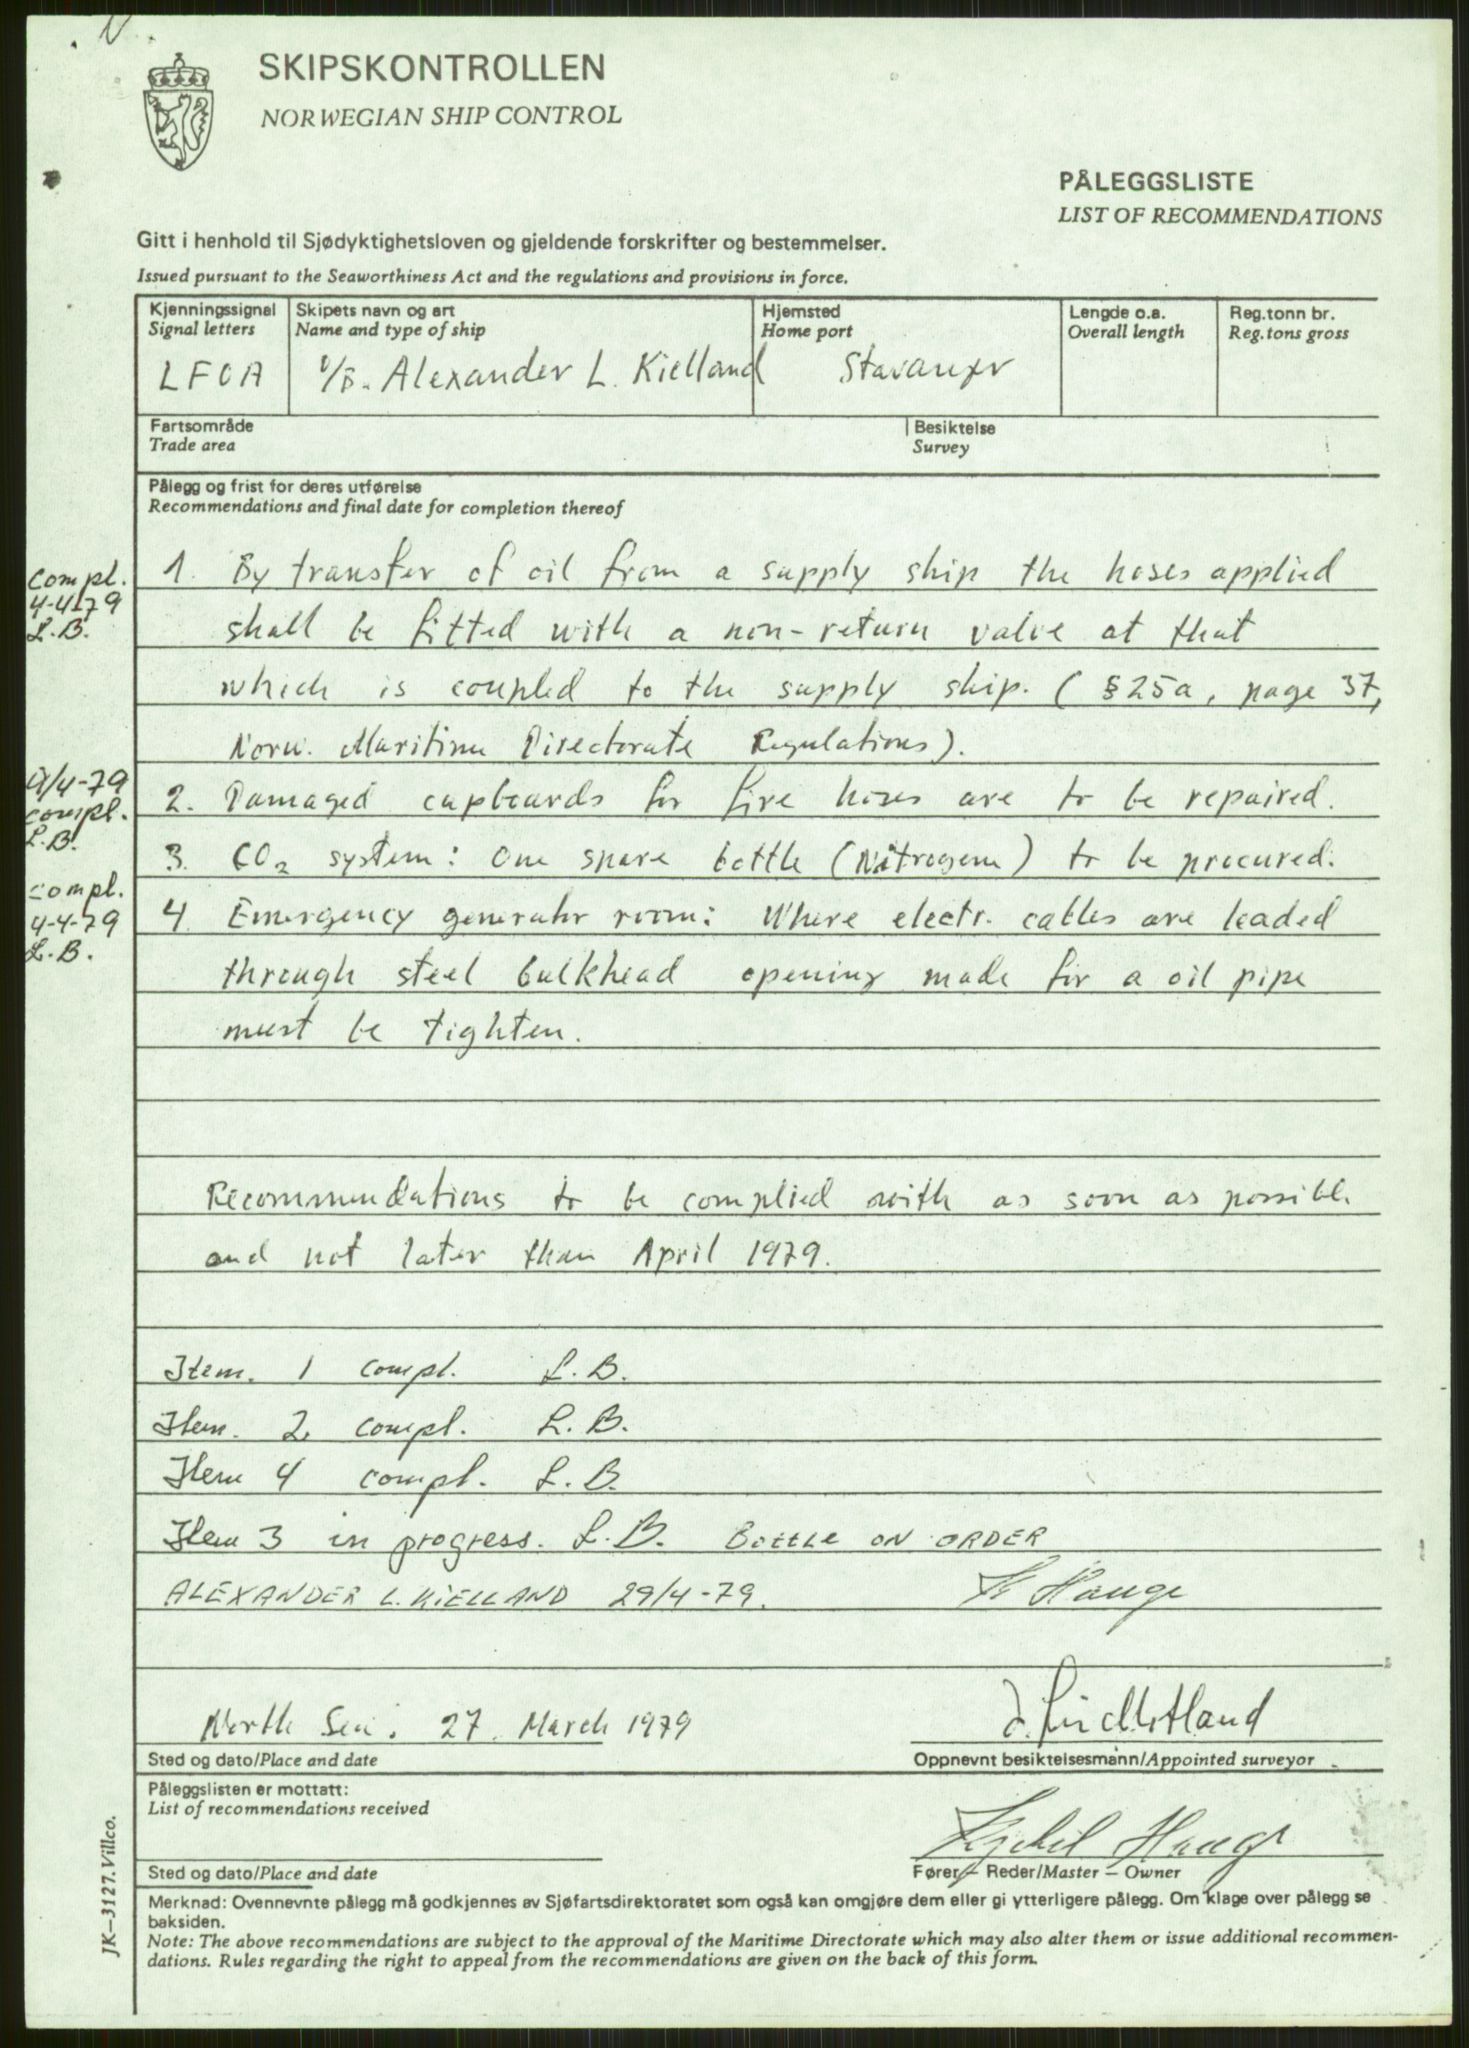 SKIPSKONTROLLEN
NORWEGIAN SHIP CONTROL
PÅLEGGSLISTE
LIST OF RECOMMENDATIONS
Gitt i henhold til Sjødyktighetsloven og gjeldende forskrifter og bestemmelser.
Issued pursuant to the Seaworthiness Act and the regulations and provisions in force.
Kjenningssignal
Signal letters
LFOA
Skipets navn og art
Name and type of ship
Alexander L. Kielland
Hjemsted
Home port
Stavanger
Lengde o.a.
Overall length
Reg.tonn br.
Reg.tons gross
Fartsområde
Trade area
Besiktelse
Survey
Pålegg og frist for deres utførelse
Recommendations and final date for completion thereof
compl.
4-4-79
L.B.
1. By transfer of oil from a supply ship the hoses applied
shall be fitted with a non-return valve at that
which is coupled to the supply ship. (§25a, page 37,
Norw. Maritime Directorate Regulations).
/4-79
compl.
L.B.
2. Damaged cupboards for fire hoses are to be repaired.
3. CO2 system: One spare bottle (Nitrogene) to be procured.
compl.
4-4-79
L.B.
4 Emergency generator room: Where electr. cables are leaded
through steel bulkhead opening made for a oil pipe
must be tighten.
Recommendations to be complied with as soon as possible
and not later than April 1979.
Item. 1 compl. L.B.
Item. 2 compl. L.B.
Item 4 compl. L.B.
Item 3 in progress. L.B. BOTTLE ON ORDER
ALEXANDER L. KIELLAND 29/4-79. Hauge
North Sea. 27. March 1979
Sted og dato/Place and date
Oppnevnt besiktelsesmann/Appointed surveyor
Påleggslisten er mottatt:
List of recommendations received
Hauge
Sted og dato/Place and date
Fører – Reder/Master – Owner
Merknad: Ovennevnte pålegg må godkjennes av Sjøfartsdirektoratet som også kan omgjøre dem eller gi ytterligere pålegg. Om klage over pålegg se
baksiden.
Note: The above recommendations are subject to the approval of the Maritime Directorate which may also alter them or issue additional recommen-
dations. Rules regarding the right to appeal from the recommendations are given on the back of this form.
JK–3127. Villco.